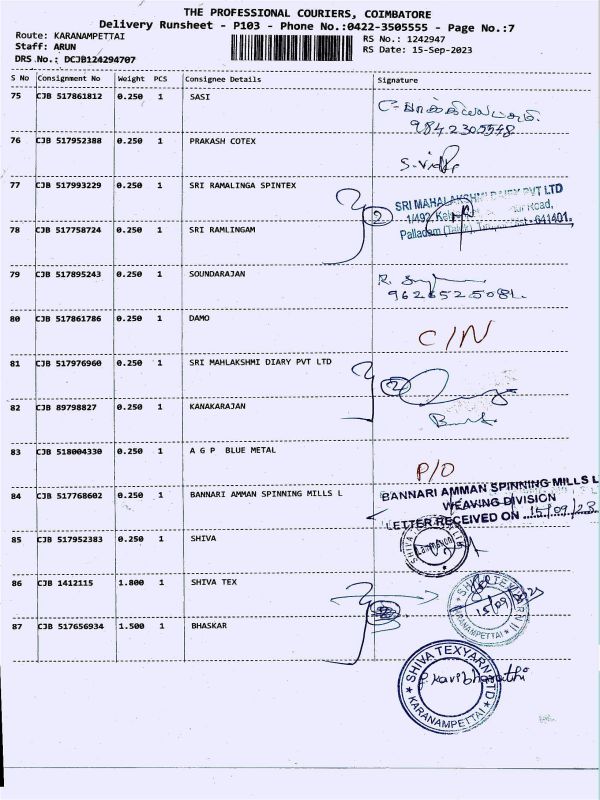 THE PROFESSIONAL COURIERS, COIMBATORE
Delivery Runsheet - P103 - Phone No.:0422-3505555 - Page No.:7
Route: KARANAMPETTAI
RS No.: 1242947
Staff: ARUN
RS Date: 15-Sep-2023
DRS No.: DCJB124294707
S No Consignment No Weight PCS Consignee Details Signature
75 CJB 517861812 0.250 1 SASI
9842305548
76 CJB 517952388 0.250 1 PRAKASH COTEX
77 CJB 517993229 0.250 1 SRI RAMALINGA SPINTEX
2
SRI MAHALAKSHMI DAIRY PVT LTD
1/492, Road,
78 CJB 517758724 0.250 1 SRI RAMLINGAM
Palladam (Taluk), 641401.
79 CJB 517895243 0.250 1 SOUNDARAJAN
80 CJB 517861786 0.250 1 DAMO
C/N
81 CJB 517976960 0.250 1 SRI MAHLAKSHMI DIARY PVT LTD
2
82 CJB 89798827 0.250 1 KANAKARAJAN
83 CJB 518004330 0.250 1 A G P BLUE METAL
P/O
84 CJB 517768602 0.250 1 BANNARI AMMAN SPINNING MILLS L
BANNARI AMMAN SPINNING MILLS L
WEAVING DIVISION
LETTER RECEIVED ON 15/09/23
85 CJB 517952383 0.250 1 SHIVA
86 CJB 1412115 1.800 1 SHIVA TEX
SHIVA TEXYARN
15/09/2023
KARANAMPETTAI
87 CJB 517656934 1.500 1 BHASKAR
SHIVA TEXYARN LTD
P. Kavibharathi
KARANAMPETTAI